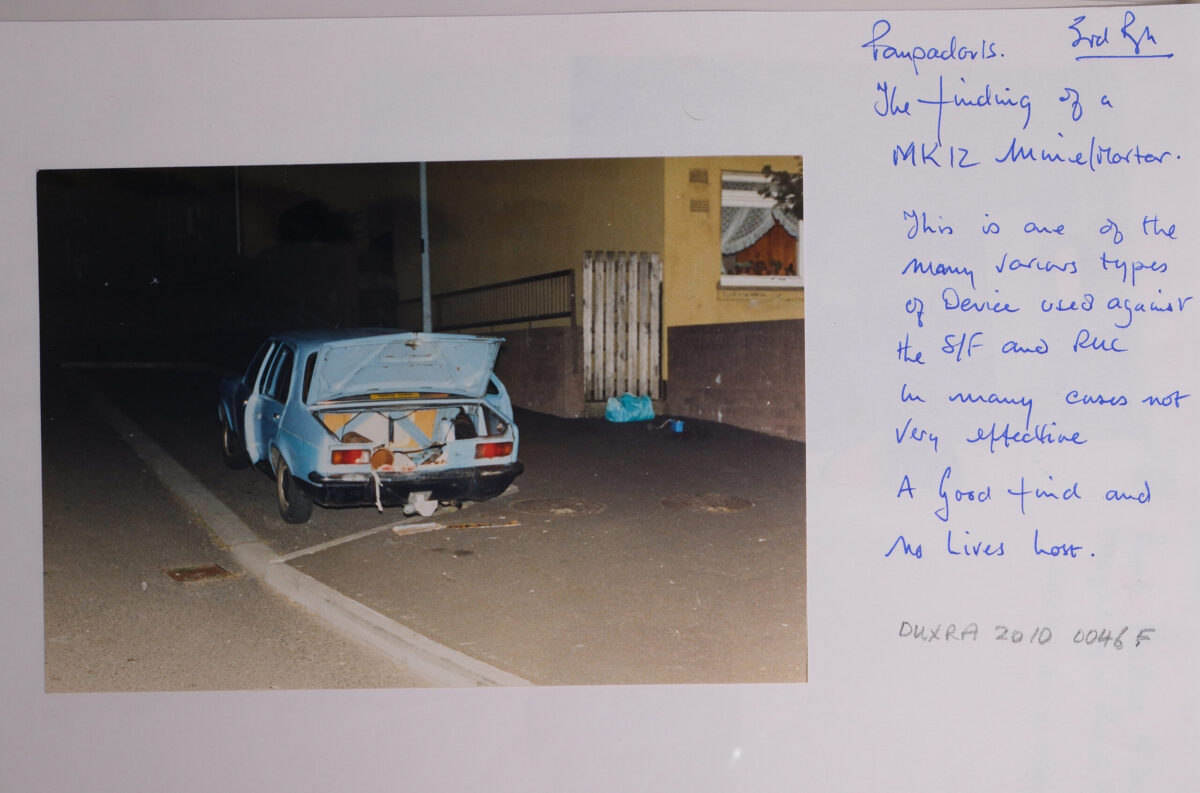 3rd Rgn
The finding of a
MK12 Mine/Mortar.
This is one of the
many various types
of Device used against
the S/F and RUC
in many cases not
very effective
A Good find and
no Lives Lost.
DUXRA 2010 0046 F